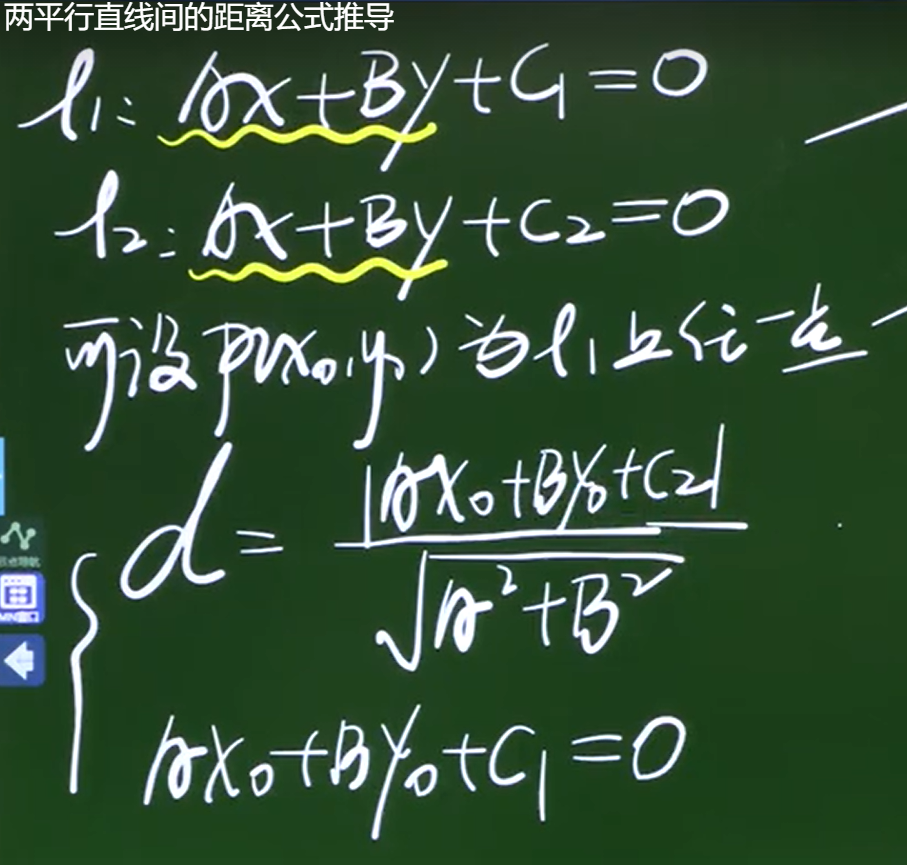 两平行直线间的距离公式推导
l₁: Ax+By+C₁=0
l₂: Ax+By+C₂=0
可设P(x₀,y₀)为l₁上任一点
d=|Ax₀+By₀+C₂|/√A²+B²
Ax₀+By₀+C₁=0